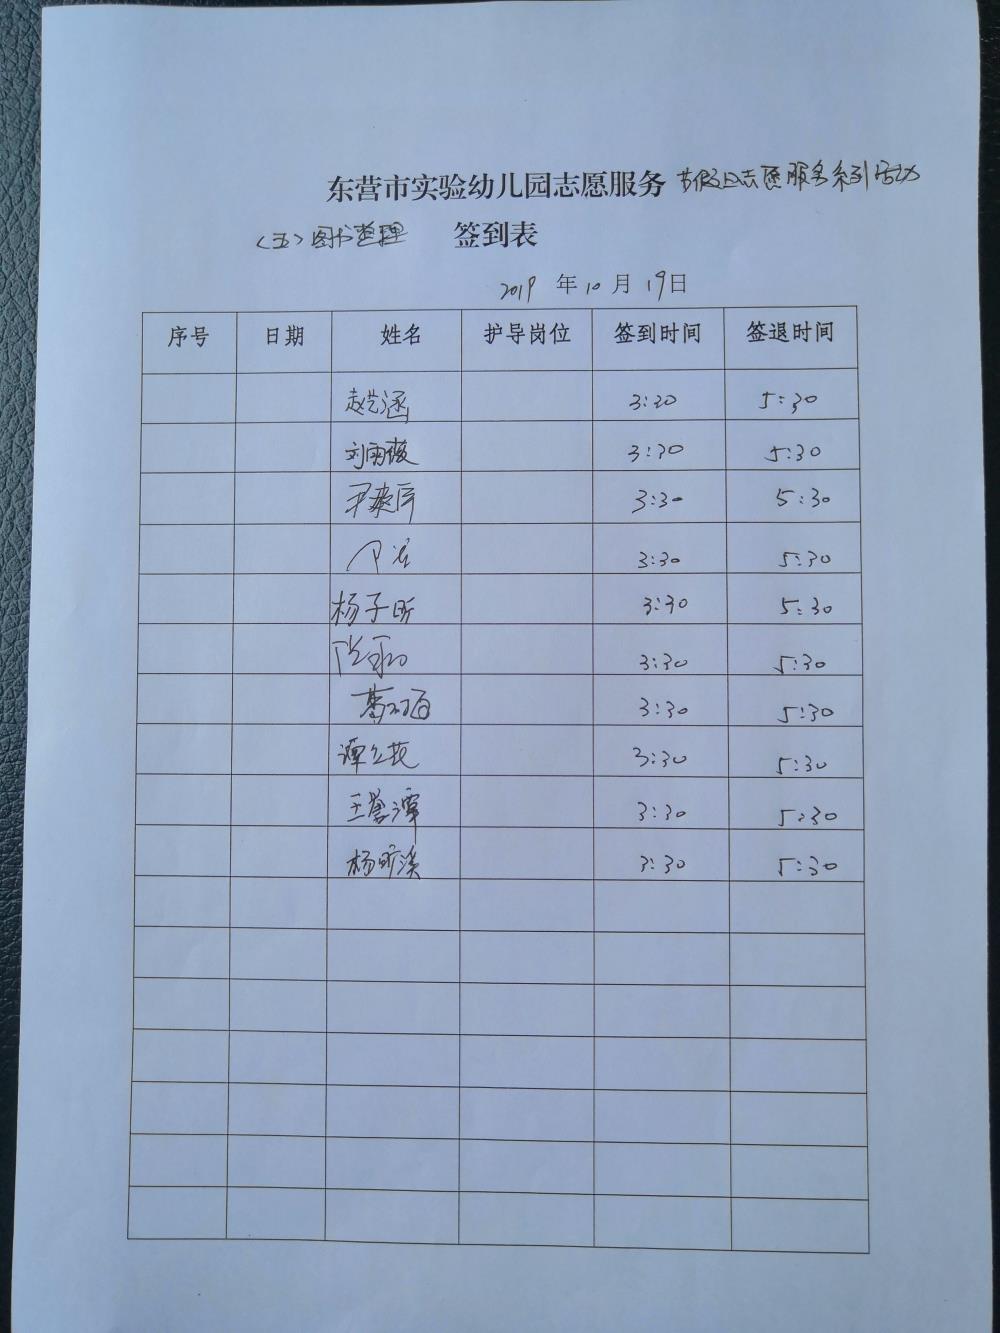 东营市实验幼儿园志愿服务 节假日志愿服务系列活动
(五)图书整理 签到表
2019 年 10 月 19 日
序号 日期 姓名 护导岗位 签到时间 签退时间
赵艺涵 3:30 5:30
刘雨薇 3:30 5:30
3:30 5:30
3:30 5:30
杨子昕 3:30 5:30
3:30 5:30
3:30 5:30
3:30 5:30
3:30 5:30
杨昕溪 3:30 5:30